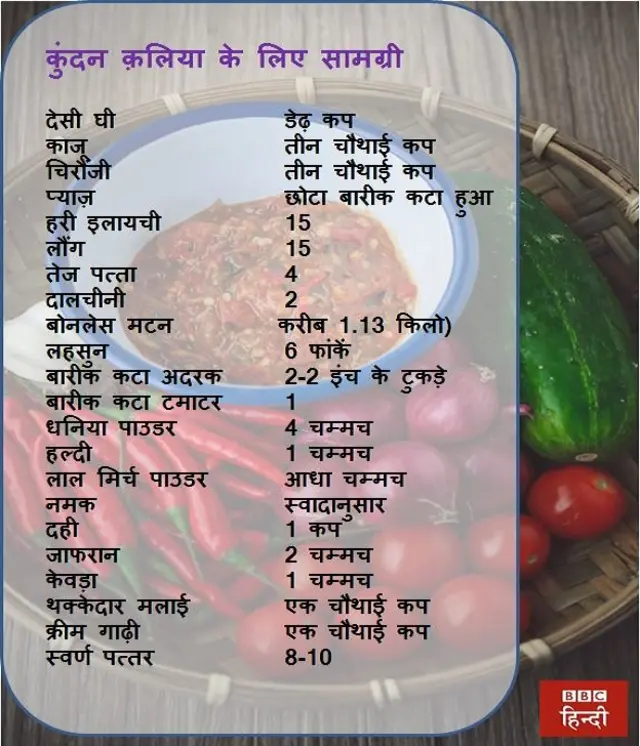 कुंदन क़लिया के लिए सामग्री
देसी घी डेढ़ कप
काजू तीन चौथाई कप
चिरौंजी तीन चौथाई कप
प्याज़ छोटा बारीक कटा हुआ
हरी इलायची 15
लौंग 15
तेज पत्ता 4
दालचीनी 2
बोनलेस मटन करीब 1.13 किलो)
लहसुन 6 फांकें
बारीक कटा अदरक 2-2 इंच के टुकड़े
बारीक कटा टमाटर 1
धनिया पाउडर 4 चम्मच
हल्दी 1 चम्मच
लाल मिर्च पाउडर आधा चम्मच
नमक स्वादानुसार
दही 1 कप
जाफरान 2 चम्मच
केवड़ा 1 चम्मच
थक्केदार मलाई एक चौथाई कप
क्रीम गाढ़ी एक चौथाई कप
स्वर्ण पत्तर 8-10
BBC
हिन्दी